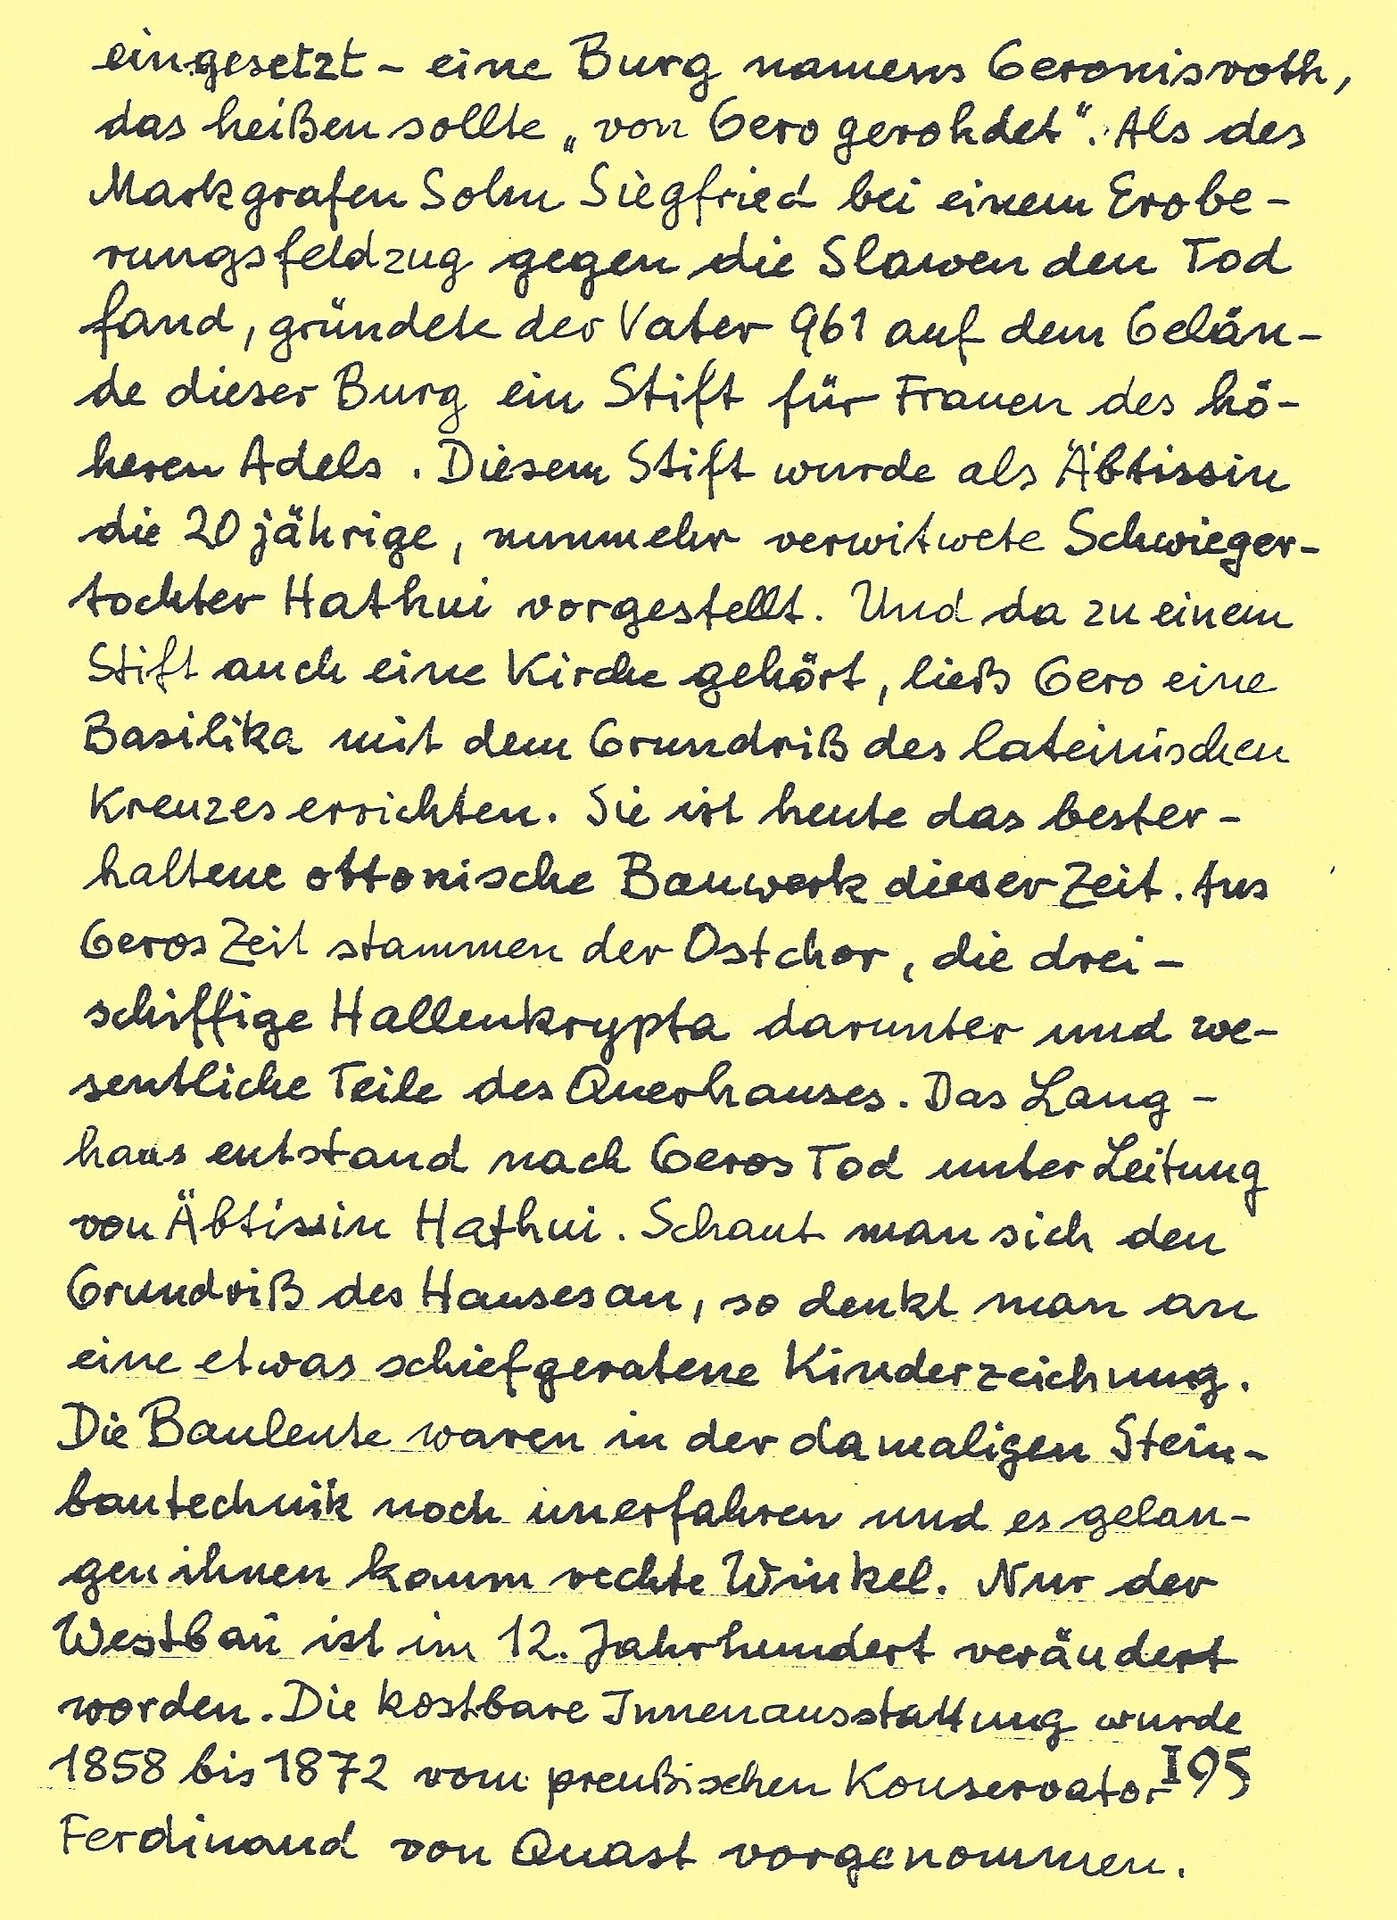 eingesetzt – eine Burg namens Geronisroth,
das heißen sollte „von Gero gerohdet". Als des
Markgrafen Sohn Siegfried bei einem Erobe-
rungsfeldzug gegen die Slawen den Tod
fand, gründete der Vater 961 auf dem Gelän-
de dieser Burg ein Stift für Frauen des hö-
heren Adels. Diesem Stift wurde als Äbtissin
die 20jährige, nunmehr verwitwete Schwieger-
tochter Hathui vorgestellt. Und da zu einem
Stift auch eine Kirche gehört, ließ Gero eine
Basilika mit dem Grundriß des lateinischen
Kreuzes errichten. Sie ist heute das bester-
haltene ottonische Bauwerk dieser Zeit. Aus
Geros Zeit stammen der Ostchor, die drei-
schiffige Hallenkrypta darunter und we-
sentliche Teile des Querhauses. Das Lang-
haus entstand nach Geros Tod unter Leitung
von Äbtissin Hathui. Schaut man sich den
Grundriß des Hauses an, so denkt man an
eine etwas schiefgeratene Kinderzeichnung.
Die Bauleute waren in der damaligen Stein-
bautechnik noch unerfahren und es gelan-
gen ihnen kaum rechte Winkel. Nur der
Westbau ist im 12. Jahrhundert verändert
worden. Die kostbare Innenausstattung wurde
1858 bis 1872 vom preußischen Konservator I95
Ferdinand von Quast vorgenommen.